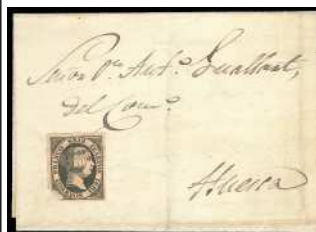 Señor Dn. Anto. Guallart,
del Como.
Huesca